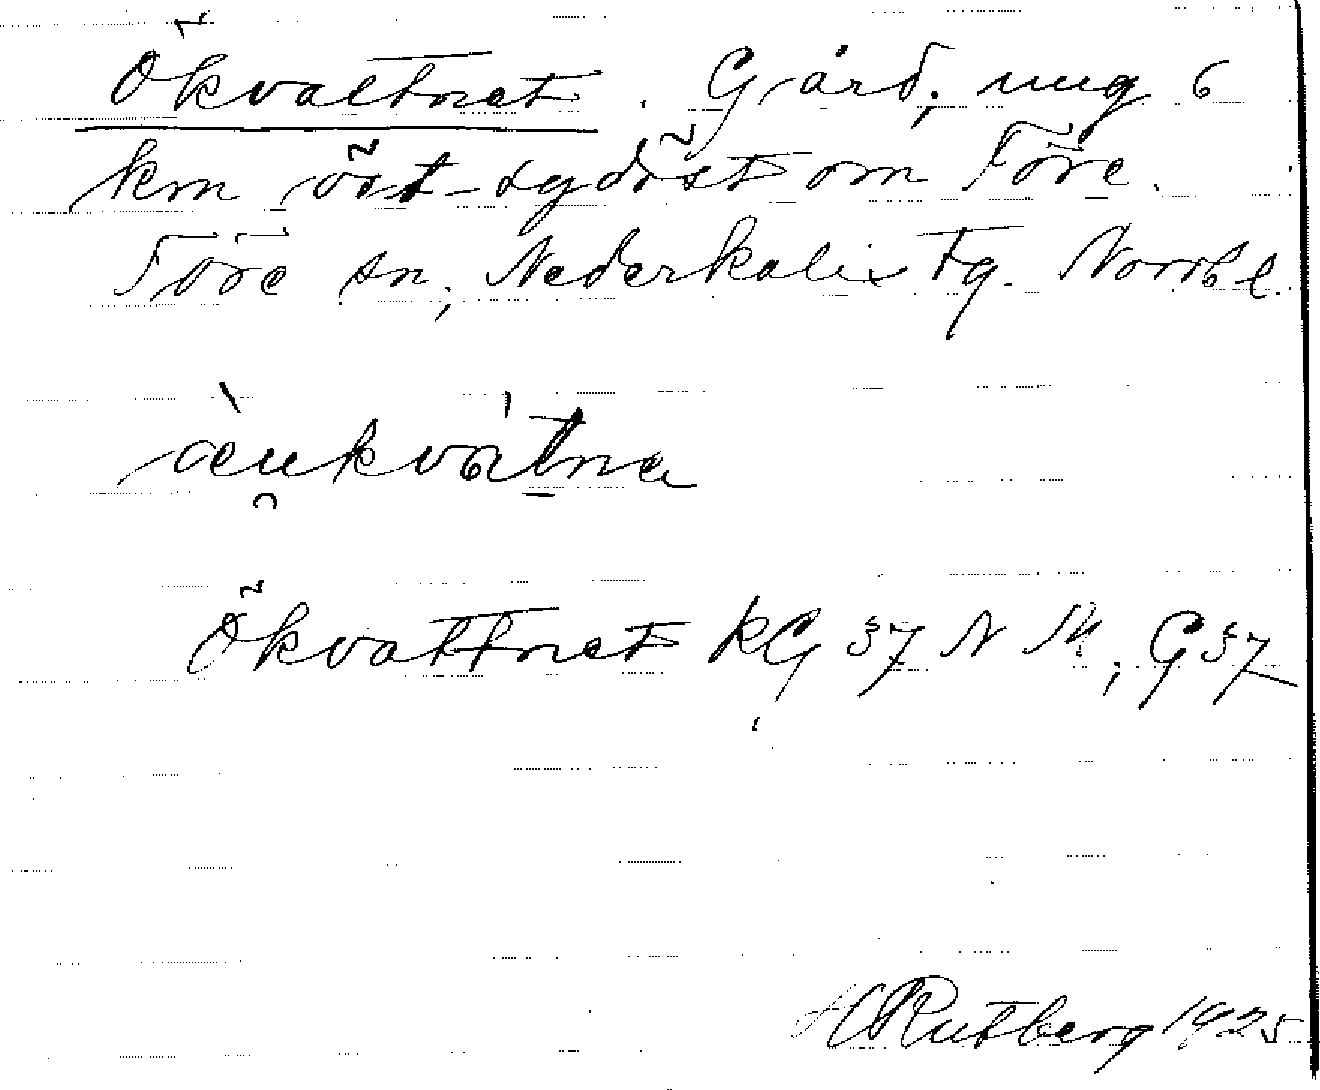 Ökvattnet. Gård, ung 6
km öst-sydöst om Töre.
Töre sn, Nederkalix Tg. Norrb l.
Ökvattnet KG 37 N M, G 37
H Rutberg 1925